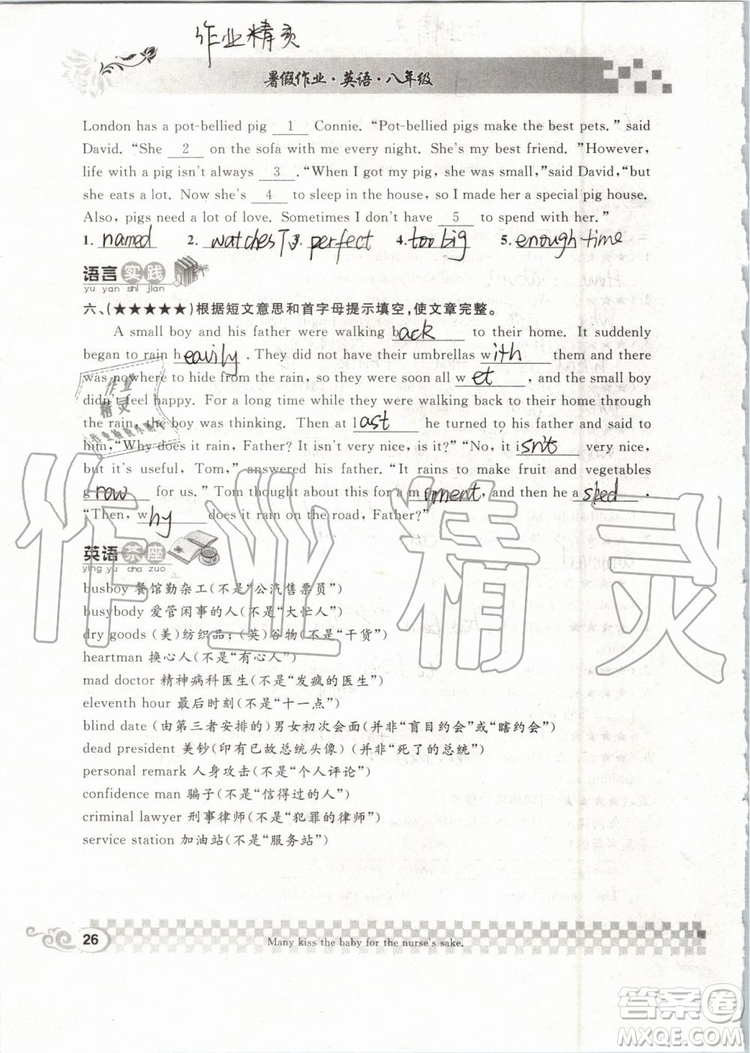 作业精灵
暑假作业·英语·八年级
London has a pot-bellied pig 1 Connie. “Pot-bellied pigs make the best pets.” said
David. “She 2 on the sofa with me every night. She's my best friend. ”However,
life with a pig isn't always 3 . “When I got my pig, she was small,”said David, “but
she eats a lot. Now she's 4 to sleep in the house, so I made her a special pig house.
Also, pigs need a lot of love. Sometimes I don't have 5 to spend with her.”
1. named 2. watches TV 3. perfect 4. too big 5. enough time
语言实践
yu yan shi jian
六、(★★★★★)根据短文意思和首字母提示填空,使文章完整。
A small boy and his father were walking back to their home. It suddenly
began to rain heavily . They did not have their umbrellas with them and there
was nowhere to hide from the rain, so they were soon all wet , and the small boy
didn't feel happy. For a long time while they were walking back to their home through
the rain, the boy was thinking. Then at last he turned to his father and said to
him,“Why does it rain, Father? It isn't very nice, is it?” “No, it isn't very nice,
but it's useful, Tom,” answered his father. “It rains to make fruit and vegetables
grow for us.” Tom thought about this for a moment , and then he asked ,
“Then, why does it rain on the road, Father?”
英语茶座
ying yu cha zuo
busboy 餐馆勤杂工(不是“公汽售票员”)
busybody 爱管闲事的人(不是“大忙人”)
dry goods (美)纺织品;(英)谷物(不是“干货”)
heartman 换心人(不是“有心人”)
mad doctor 精神病科医生(不是“发疯的医生”)
eleventh hour 最后时刻(不是“十一点”)
blind date (由第三者安排的)男女初次会面(并非“盲目约会”或“瞎约会”)
dead president 美钞(印有已故总统头像)(并非“死了的总统”)
personal remark 人身攻击(不是“个人评论”)
confidence man 骗子(不是“信得过的人”)
criminal lawyer 刑事律师(不是“犯罪的律师”)
service station 加油站(不是“服务站”)
作业精灵
26
Many kiss the baby for the nurse's sake.
答案圈
MXQE.COM